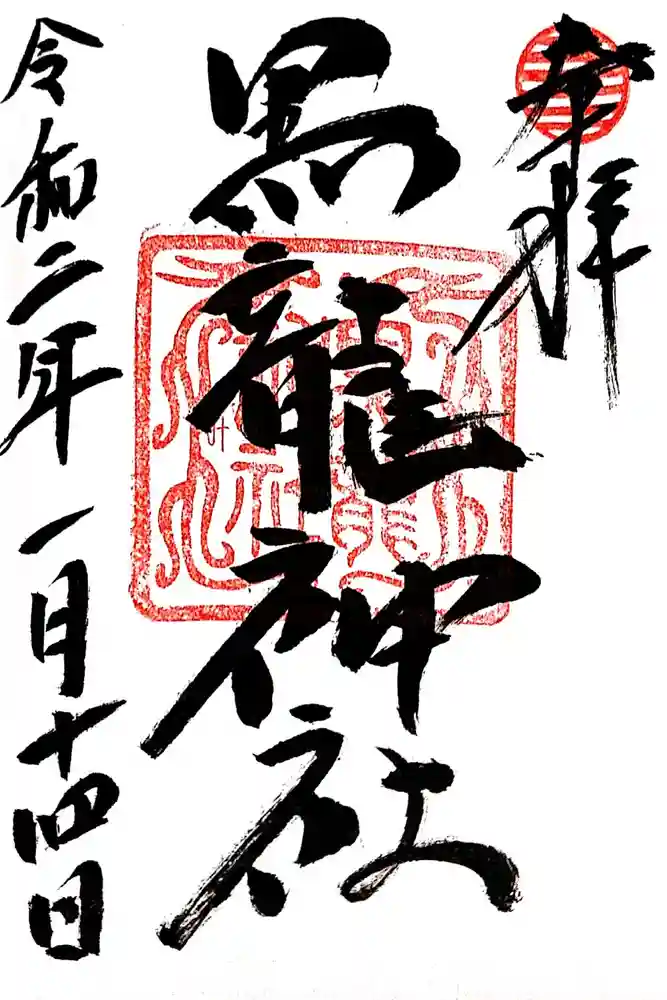 奉拝
黒龍神社
令和二年 一月十四日